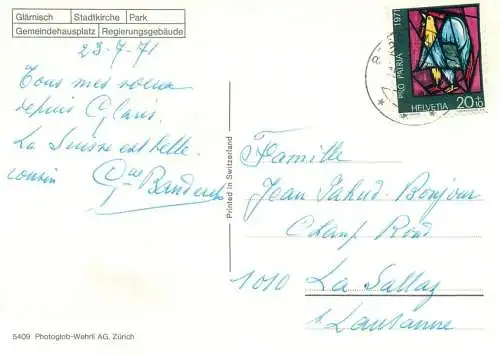 Glärnisch Stadtkirche Park
Gemeindehausplatz Regierungsgebäude
23-7-71
Tous mes voeux
depuis Glaris.
La Suisse est belle.
cousin
PRO PATRIA 1971
HELVETIA 20+10
Printed in Switzerland
Famille
Jean Bonjour
Champ Rond
1010 La Sallaz
s/Lausanne
5409 Photoglob-Wehrli AG, Zürich